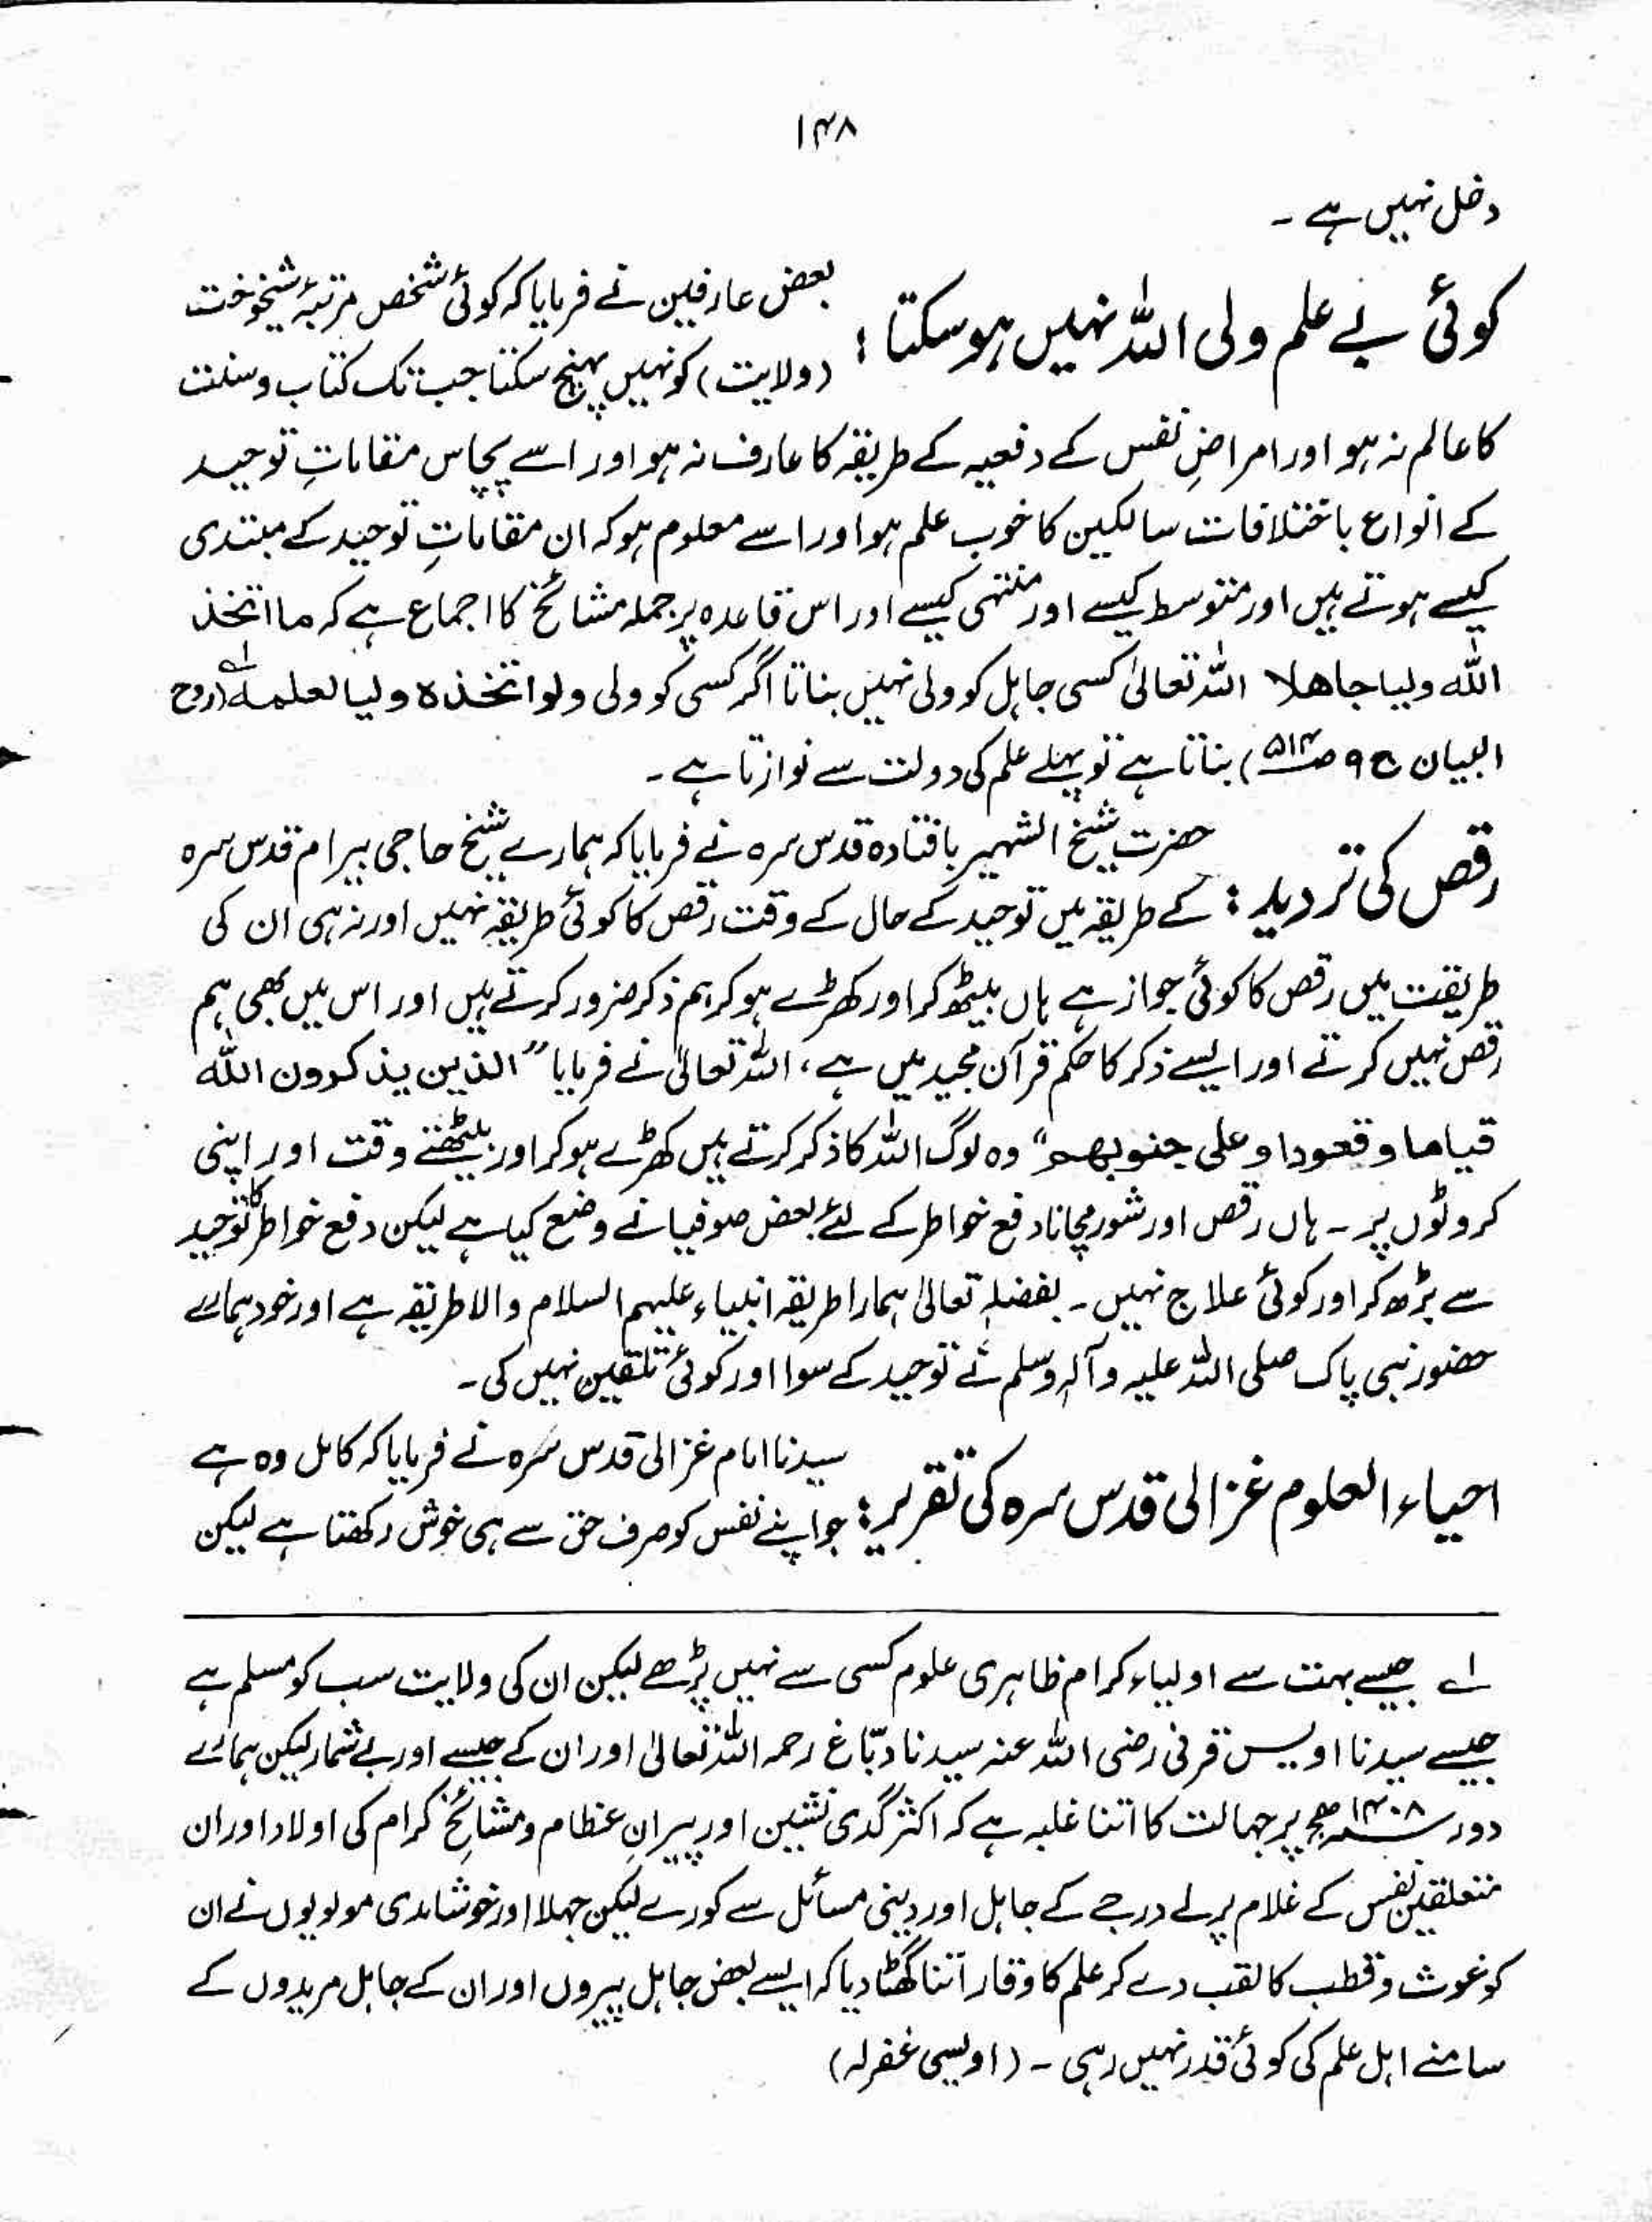 ۱۴۸
دخل نہیں ہے ۔
کوئی بے علم ولی اللہ نہیں ہوسکتا :
بعض عارفین نے فرمایا کہ کوئی شخص مرتبۂ شیخوخت
(ولایت) کو نہیں پہنچ سکتا جب تک کتاب و سنت
کا عالم نہ ہو اور امراضِ نفس کے دفعیہ کے طریقہ کا عارف نہ ہو اور اسے پچاس مقاماتِ توحید
کے انواع باختلافات سالکین کا خوب علم ہو اور اسے معلوم ہو کہ ان مقاماتِ توحید کے مبتدی
کیسے ہوتے ہیں اور متوسط کیسے اور منتہی کیسے اور اس قاعدہ پر جملہ مشائخ کا اجماع ہے کہ ما اتخذ
اللہ ولیا جاھلا اللہ تعالیٰ کسی جاہل کو ولی نہیں بناتا اگر کسی کو ولی ولو اتخذہ ولیا لعلمہ لے (روح
البیان ج ۹ صـ ۵۱۴) بناتا ہے تو پہلے علم کی دولت سے نوازتا ہے ۔
رقص کی تردید :
حضرت شیخ الشہیر بافتادہ قدس سرہ نے فرمایا کہ ہمارے شیخ حاجی بیرام قدس سرہ
کے طریقہ میں توحید کے حال کے وقت رقص کا کوئی طریقہ نہیں اور نہ ہی ان کی
طریقت میں رقص کا کوئی جواز ہے ہاں بیٹھ کر اور کھڑے ہو کر ہم ذکر ضرور کرتے ہیں اور اس میں بھی ہم
رقص نہیں کرتے اور ایسے ذکر کا حکم قرآن مجید میں ہے ، اللہ تعالیٰ نے فرمایا ”الذین یذکرون اللہ
قیاما و قعودا و علی جنوبھم“ وہ لوگ اللہ کا ذکر کرتے ہیں کھڑے ہو کر اور بیٹھتے وقت اور اپنی
کروٹوں پر ۔ ہاں رقص اور شور مچانا دفع خواطر کے لئے بعض صوفیا نے وضع کیا ہے لیکن دفع خواطر کا توحید
سے بڑھ کر اور کوئی علاج نہیں ۔ بفضلہٖ تعالیٰ ہمارا طریقہ انبیاء علیہم السلام والا طریقہ ہے اور خود ہمارے
حضور نبی پاک صلی اللہ علیہ وآلہٖ وسلم نے توحید کے سوا اور کوئی تلقین نہیں کی ۔
احیاء العلوم غزالی قدس سرہ کی تقریر :
سیدنا امام غزالی قدس سرہ نے فرمایا کہ کامل وہ ہے
جو اپنے نفس کو صرف حق سے ہی خوش رکھتا ہے لیکن
لے جیسے بہت سے اولیاء کرام ظاہری علوم کسی سے نہیں پڑھے لیکن ان کی ولایت سب کو مسلم ہے
جیسے سیدنا اویس قرنی رضی اللہ عنہ سیدنا دبّاغ رحمہ اللہ تعالیٰ اور ان کے جیسے اور بے شمار لیکن ہمارے
دور ۱۴۰۸ھ پر جہالت کا اتنا غلبہ ہے کہ اکثر گدی نشین اور پیرانِ عظام و مشائخِ کرام کی اولاد اور ان
متعلقین نفس کے غلام پرلے درجے کے جاہل اور دینی مسائل سے کورے لیکن جہلا اور خوشامدی مولویوں نے ان
کو غوث و قطب کا لقب دے کر علم کا وقار اتنا گھٹا دیا کہ ایسے بعض جاہل پیروں اور ان کے جاہل مریدوں کے
سامنے اہل علم کی کوئی قدر نہیں رہی ۔ (اویسی غفرلہ)